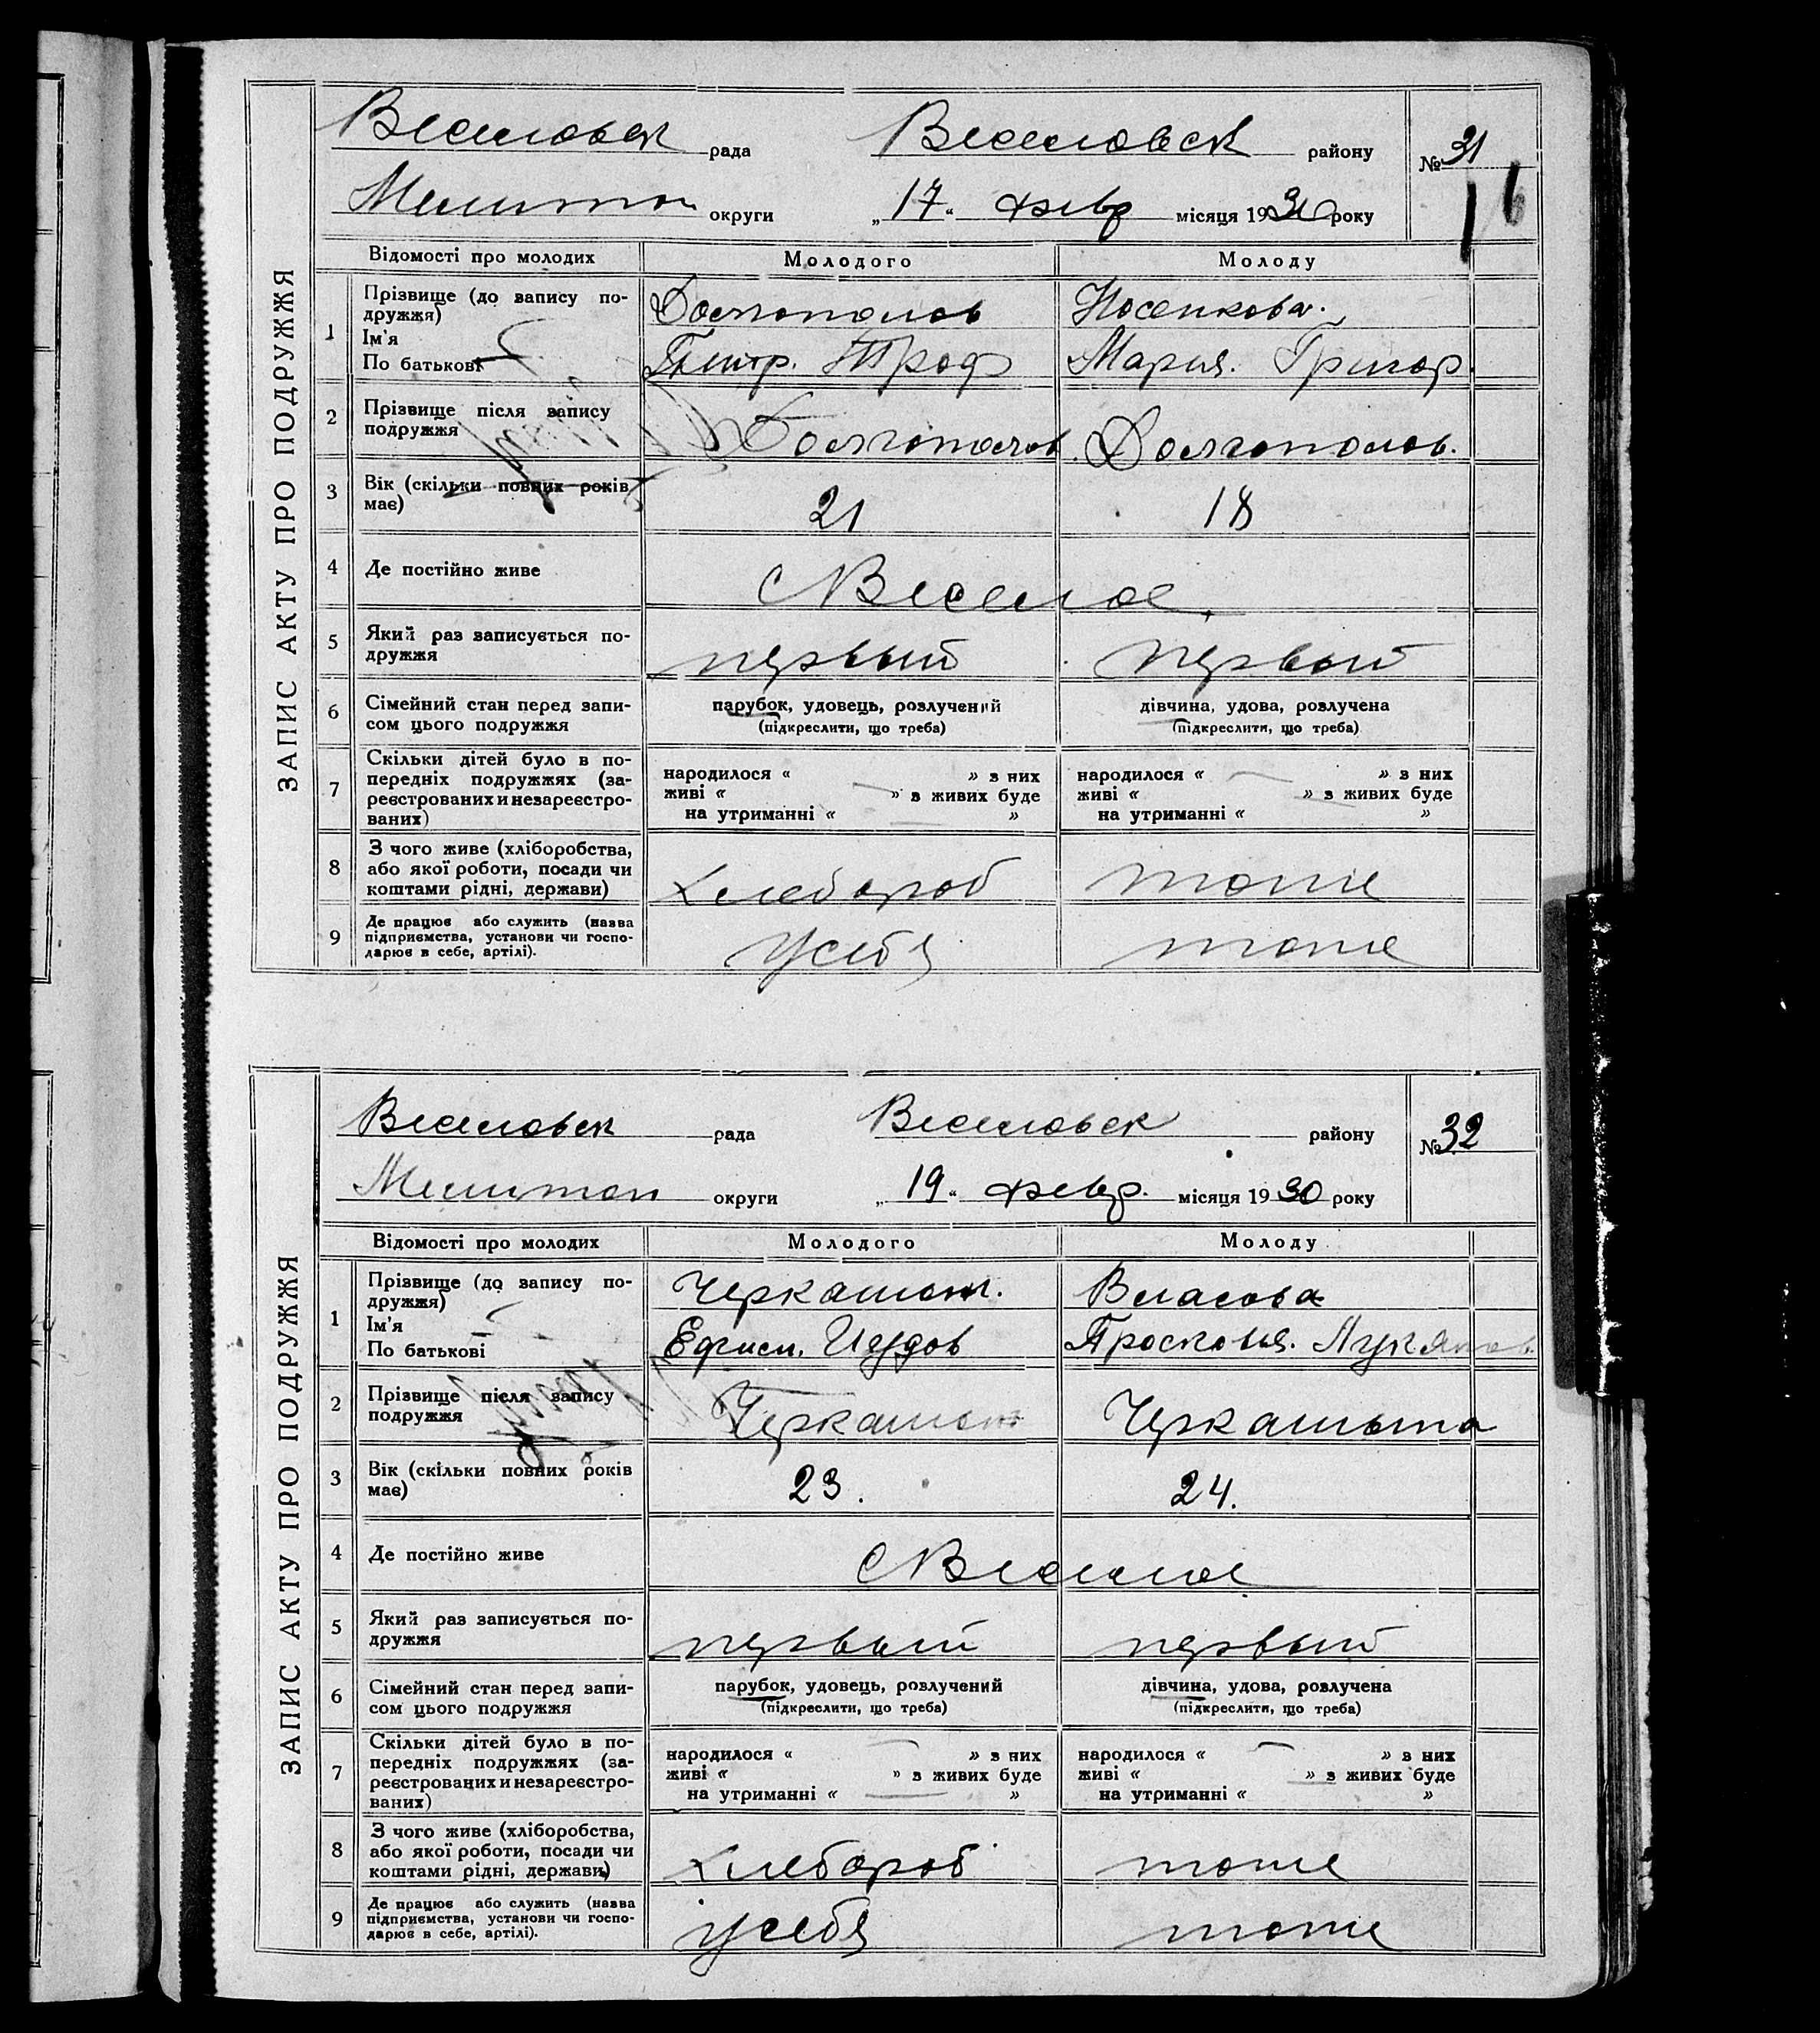 ЗАПИС АКТУ ПРО ПОДРУЖЖЯ
Веселовск рада Веселовск району № 31
Мелитоп округи „17“ февр місяця 1930 року
16
Відомості про молодих Молодого Молоду
1 Прізвище (до запису по- Долгополов Носенкова.
дружжя)
Ім'я Петр. Троф Мария. Григор.
По батькові
2 Прізвище після запису Долгополов. Долгополов.
подружжя
3 Вік (скільки повних років 21 18
має)
4 Де постійно живе с Веселое
5 Який раз записується по- первый первый
дружжя
6 Сімейний стан перед запи- парубок, удовець, розлучений дівчина, удова, розлучена
сом цього подружжя (підкреслити, що треба) (підкреслити, що треба)
7 Скільки дітей було в по-
передніх подружжях (за- народилося « » з них народилося « » з них
реєстрованих и незареєстро- живі « » з живих буде живі « » з живих буде
ваних) на утриманні « » на утриманні « »
8 З чого живе (хліборобства,
або якої роботи, посади чи
коштами рідні, держави) хлебороб тоже
9 Де працює або служить (назва
підприємства, установи чи госпо-
дарює в себе, артілі). у себя тоже
ЗАПИС АКТУ ПРО ПОДРУЖЖЯ
Веселовск рада Веселовск району № 32
Мелитоп округи „19“ февр. місяця 1930 року
Відомості про молодих Молодого Молоду
1 Прізвище (до запису по- Власова
дружжя)
Ім'я Ефим. Просковья. Лукянов
По батькові
2 Прізвище після запису
подружжя
3 Вік (скільки повних років 23. 24.
має)
4 Де постійно живе с Веселое
5 Який раз записується по- первый первый
дружжя
6 Сімейний стан перед запи- парубок, удовець, розлучений дівчина, удова, розлучена
сом цього подружжя (підкреслити, що треба) (підкреслити, що треба)
7 Скільки дітей було в по-
передніх подружжях (за- народилося « » з них народилося « » з них
реєстрованих и незареєстро- живі « » з живих буде живі « » з живих буде
ваних) на утриманні « » на утриманні « »
8 З чого живе (хліборобства,
або якої роботи, посади чи
коштами рідні, держави) хлебороб тоже
9 Де працює або служить (назва
підприємства, установи чи госпо-
дарює в себе, артілі). у себя тоже